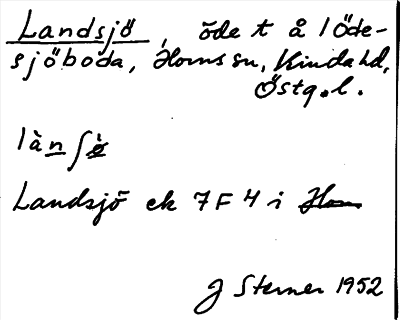 Landsjö, öde t å l Öde-
sjöboda, Horns sn, Kinda hd,
Östg.l.
làn∫ö̀
Landsjö ek 7F4 i Horn
J Sterner 1952